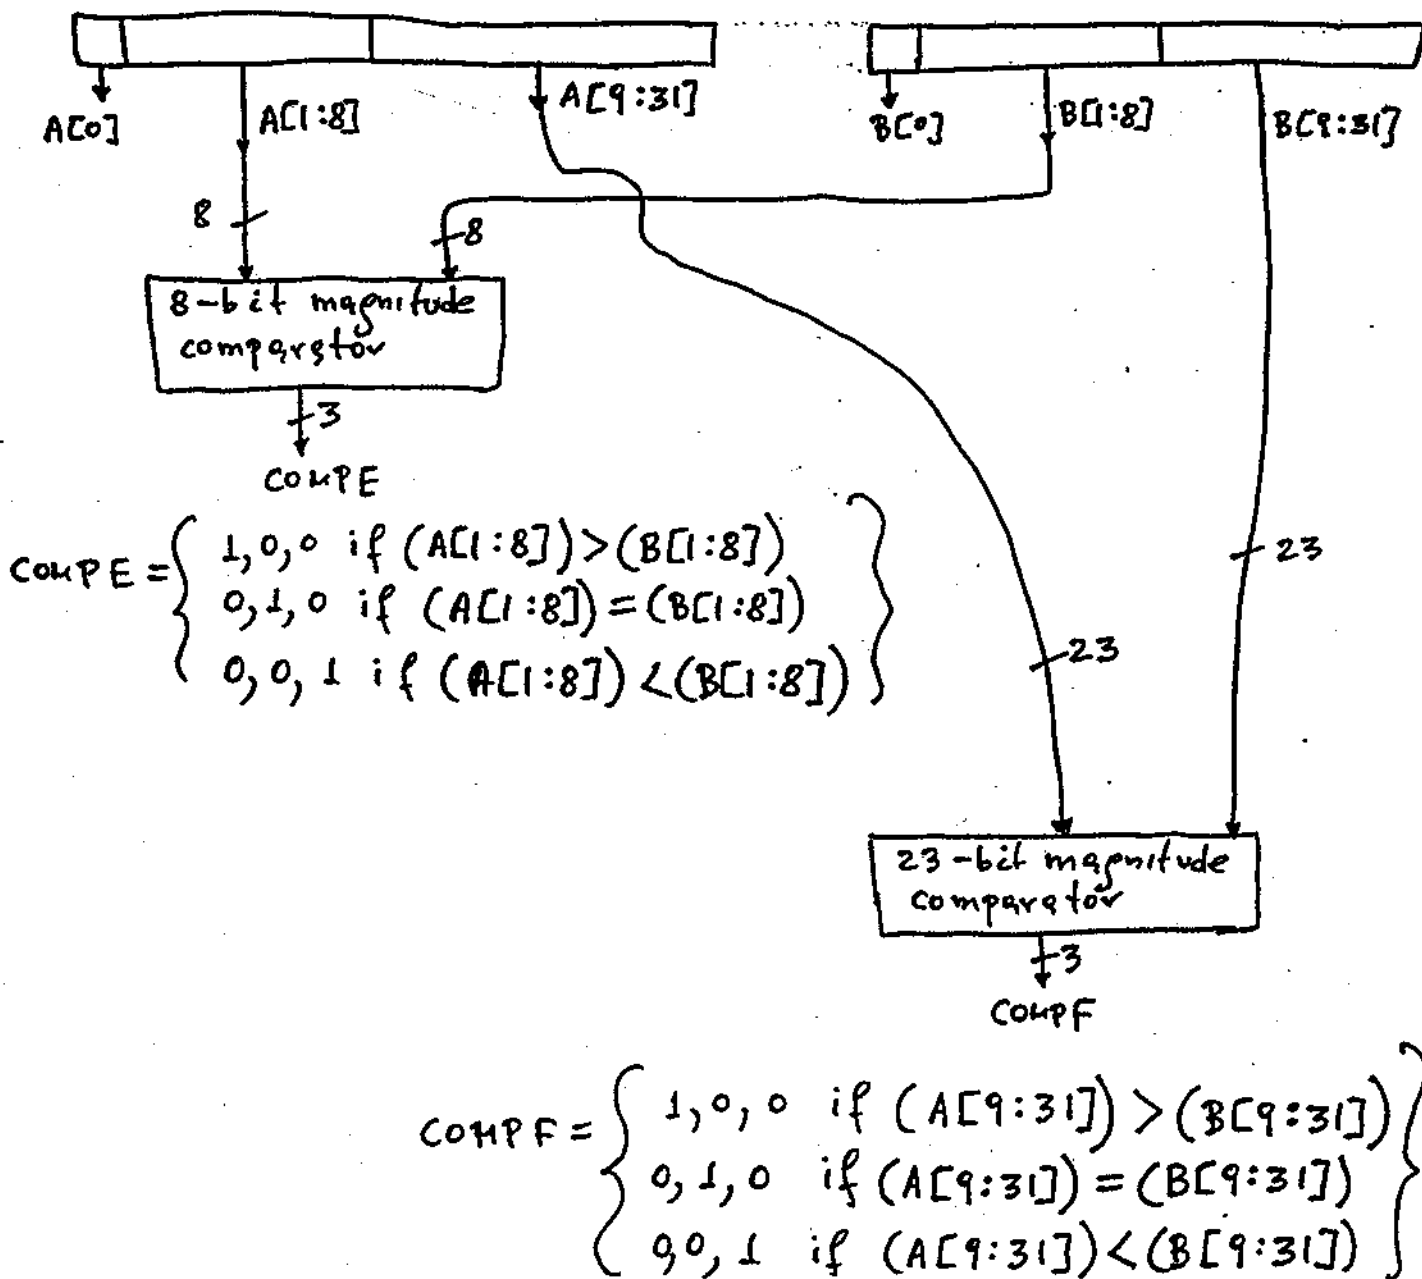 A[0]
A[1:8]
A[9:31]
B[0]
B[1:8]
B[9:31]
8
8
8-bit magnitude
comparator
3
COMPE
COMPE = { 1,0,0 if (A[1:8])>(B[1:8])
0,1,0 if (A[1:8])=(B[1:8])
0,0,1 if (A[1:8])<(B[1:8]) }
23
23
23-bit magnitude
comparator
3
COMPF
COMPF = { 1,0,0 if (A[9:31])>(B[9:31])
0,1,0 if (A[9:31])=(B[9:31])
0,0,1 if (A[9:31])<(B[9:31]) }